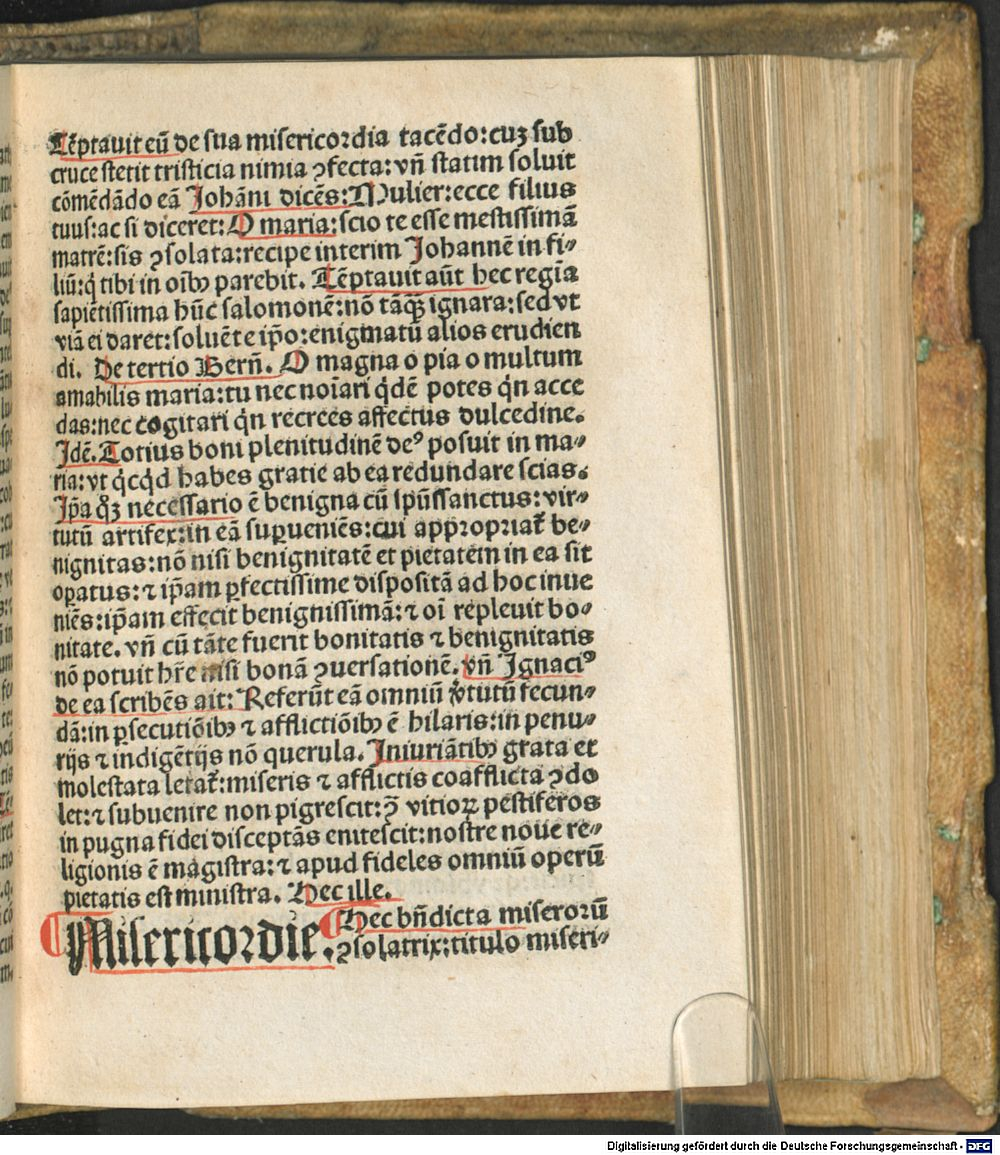 Tẽptauit eũ de sua misericordia tacẽdo: cuȝ sub
cruce stetit tristicia nimia ꝯfecta: vñ statim soluit
cõmẽdãdo eã Johãni dicẽs: Mulier: ecce filius
tuus: ac si diceret: O maria: scio te esse mestissimã
matrẽ: sis ꝯsolata: recipe interim Johannẽ in fi⸗
liũ: q̇ tibi in oĩbꝰ parebit. Tẽptauit aũt hec regĩa
sapiẽtissima hũc salomonẽ: nõ tãq̃ȝ ignara: sed vt
viã ei daret: soluẽte ip̃o: enigmatũ alios erudien
di. De tertio Berñ. O magna o pia o multum
amabilis maria: tu nec noĩari q̇dẽ potes q̇n acce
das: nec cogitari q̇n recrees affectus dulcedine.
Jdẽ. Totius boni plenitudinẽ deꝰ posuit in ma⸗
ria: vt q̇cq̇d habes gratie ab ea redundare scias.
Jp̃a q̃ȝ necessario ẽ benigna cũ sp̃ũssanctus: vir⸗
tutũ artifex: in eã suꝑueniẽs: cui appropriat̃ be⸗
nignitas: nõ nisi benignitatẽ et pietatem in ea sit
oꝑatus: ⁊ ip̃am ꝑfectissime dispositã ad hoc inue
niẽs: ip̃am effecit benignissimã: ⁊ oĩ repleuit bo⸗
nitate. vñ cũ tãte fuerit bonitatis ⁊ benignitatis
nõ potuit hr̃e nisi bonã ꝯuersationẽ. vñ Jgnaciꝰ
de ea scribẽs ait: Referũt eã omniũ v̓tutũ fecun⸗
dã: in ꝑsecutiõibꝰ ⁊ afflictiõibꝰ ẽ hilaris: in penu⸗
rijs ⁊ indigẽtijs nõ querula. Jniuriãtibꝰ grata et
molestata letat̃: miseris ⁊ afflictis coafflicta ꝯdo
let: ⁊ subuenire non pigrescit: ꝯ̃ vitioꝝ pestiferos
in pugna fidei disceptãs enitescit: nostre noue re⸗
ligionis ẽ magistra: ⁊ apud fideles omniũ operũ
pietatis est ministra. Hec ille.
Misericordie. Hec bñdicta miserorũ
ꝯsolatrix: titulo miseri⸗
Digitalisierung gefördert durch die Deutsche Forschungsgemeinschaft - DFG